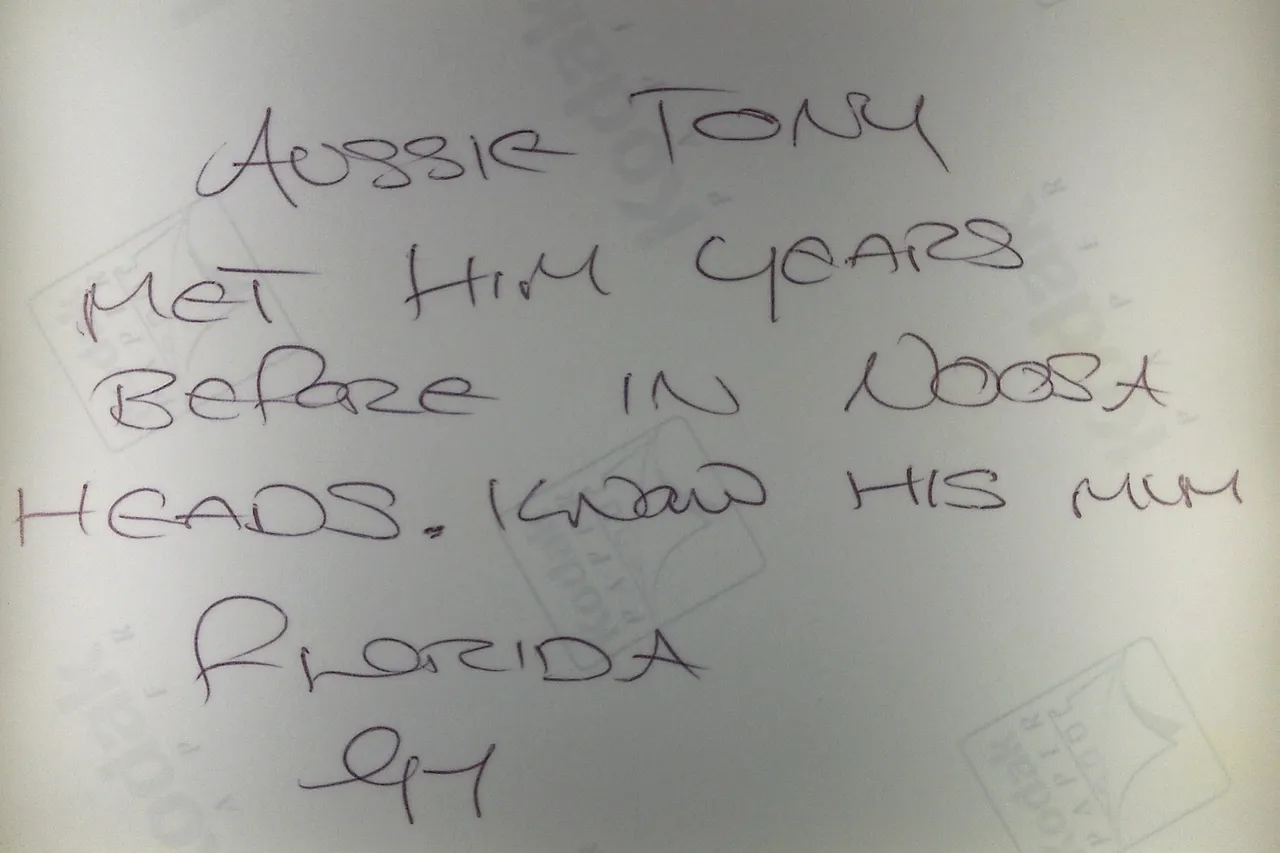 AUSSIE TONY
MET HIM YEARS
BEFORE IN NOOSA
HEADS. KNOW HIS MUM
FLORIDA
94